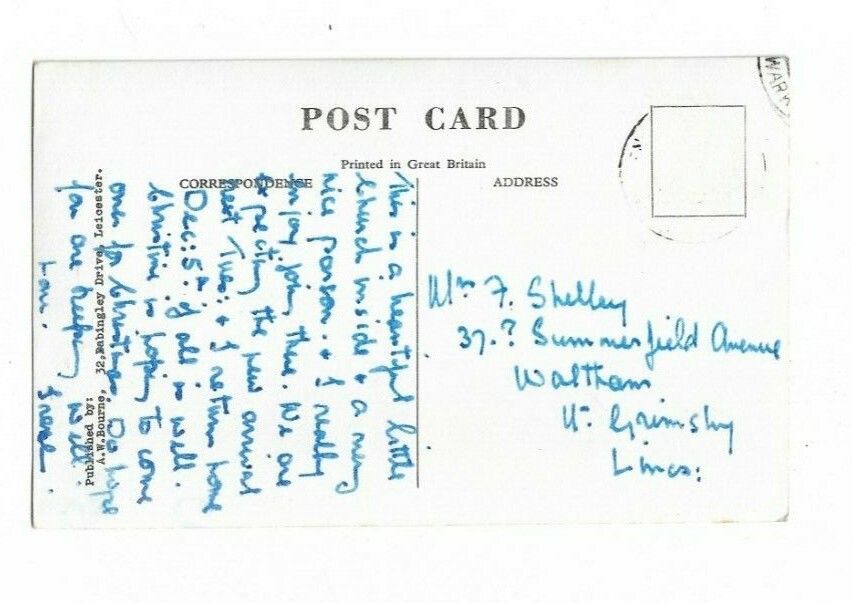 POST CARD
Printed in Great Britain
CORRESPONDENCE
ADDRESS
This is a beautiful little
Church inside & a very
nice parson. & I really
enjoy going there. We are
expecting the new arrival
next Tues: & I return home
Dec: 5th if all is well.
Christine is hoping to come
over for Christmas. Do hope
you are keeping well.
Love.
Mrs F. Shelley
37.? Summerfield Avenue
Waltham
Nr Grimsby
Lincs:
Published by:
A.W.Bourne, 32,Babingley Drive, Leicester.
WAR